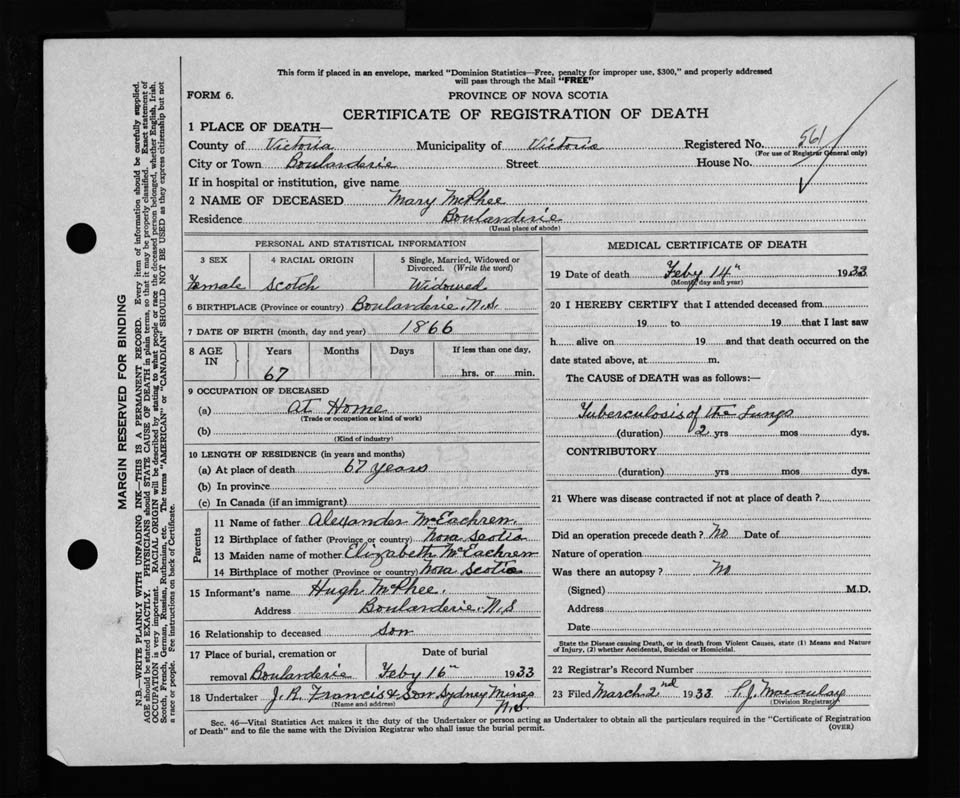 This form if placed in an envelope, marked "Dominion Statistics—Free, penalty for improper use, $300," and properly addressed
will pass through the Mail "FREE"
FORM 6.
PROVINCE OF NOVA SCOTIA
CERTIFICATE OF REGISTRATION OF DEATH
1 PLACE OF DEATH—
County of Victoria Municipality of Victoria Registered No. 561
(For use of Registrar General only)
City or Town Boulanderie Street House No.
If in hospital or institution, give name
2 NAME OF DECEASED Mary McPhee
Residence Boulanderie
(Usual place of abode)
PERSONAL AND STATISTICAL INFORMATION
3 SEX 4 RACIAL ORIGIN 5 Single, Married, Widowed or
Divorced. (Write the word)
Female Scotch Widowed
6 BIRTHPLACE (Province or country) Boulanderie N.S.
7 DATE OF BIRTH (month, day and year) 1866
8 AGE IN Years Months Days If less than one day,
67 hrs. or min.
9 OCCUPATION OF DECEASED
(a) At Home
(Trade or occupation or kind of work)
(b)
(Kind of industry)
10 LENGTH OF RESIDENCE (in years and months)
(a) At place of death 67 years
(b) In province
(c) In Canada (if an immigrant)
Parents
11 Name of father Alexander McEachren
12 Birthplace of father (Province or country) Nova Scotia
13 Maiden name of mother Elizabeth McEachren
14 Birthplace of mother (Province or country) Nova Scotia
15 Informant's name Hugh McPhee.
Address Boulanderie, N.S
16 Relationship to deceased son
17 Place of burial, cremation or Date of burial
removal Boulanderie Feby 16" 1933
18 Undertaker J. R. Francis & Son Sydney Mines
(Name and address) N.S.
MEDICAL CERTIFICATE OF DEATH
19 Date of death Feby 14" 1933
(Month, day and year)
20 I HEREBY CERTIFY that I attended deceased from
19 to 19 that I last saw
h alive on 19 and that death occurred on the
date stated above, at m.
The CAUSE of DEATH was as follows:—
Tuberculosis of the Lungs
(duration) 2 yrs mos dys.
CONTRIBUTORY
(duration) yrs mos dys.
21 Where was disease contracted if not at place of death?
Did an operation precede death? No Date of
Nature of operation
Was there an autopsy? No
(Signed) M.D.
Address
Date
State the Disease causing Death, or in death from Violent Causes, state (1) Means and Nature
of Injury, (2) whether Accidental, Suicidal or Homicidal.
22 Registrar's Record Number
23 Filed March 2nd 1933 P. J. Macaulay
(Division Registrar)
Sec. 46—Vital Statistics Act makes it the duty of the Undertaker or person acting as Undertaker to obtain all the particulars required in the "Certificate of Registration
of Death" and to file the same with the Division Registrar who shall issue the burial permit. (OVER)
MARGIN RESERVED FOR BINDING
N.B.—WRITE PLAINLY WITH UNFADING INK—THIS IS A PERMANENT RECORD. Every item of information should be carefully supplied.
AGE should be stated EXACTLY. PHYSICIANS should STATE CAUSE OF DEATH in plain terms, so that it may be properly classified. Exact statement of
OCCUPATION is very important. RACIAL ORIGIN will be described by stating to what people or race the deceased person belonged, whether English, Irish,
Scotch, French, German, Russian, Ruthenian, etc. The terms "AMERICAN" or "CANADIAN" SHOULD NOT BE USED as they express citizenship but not
a race or people. See instructions on back of Certificate.